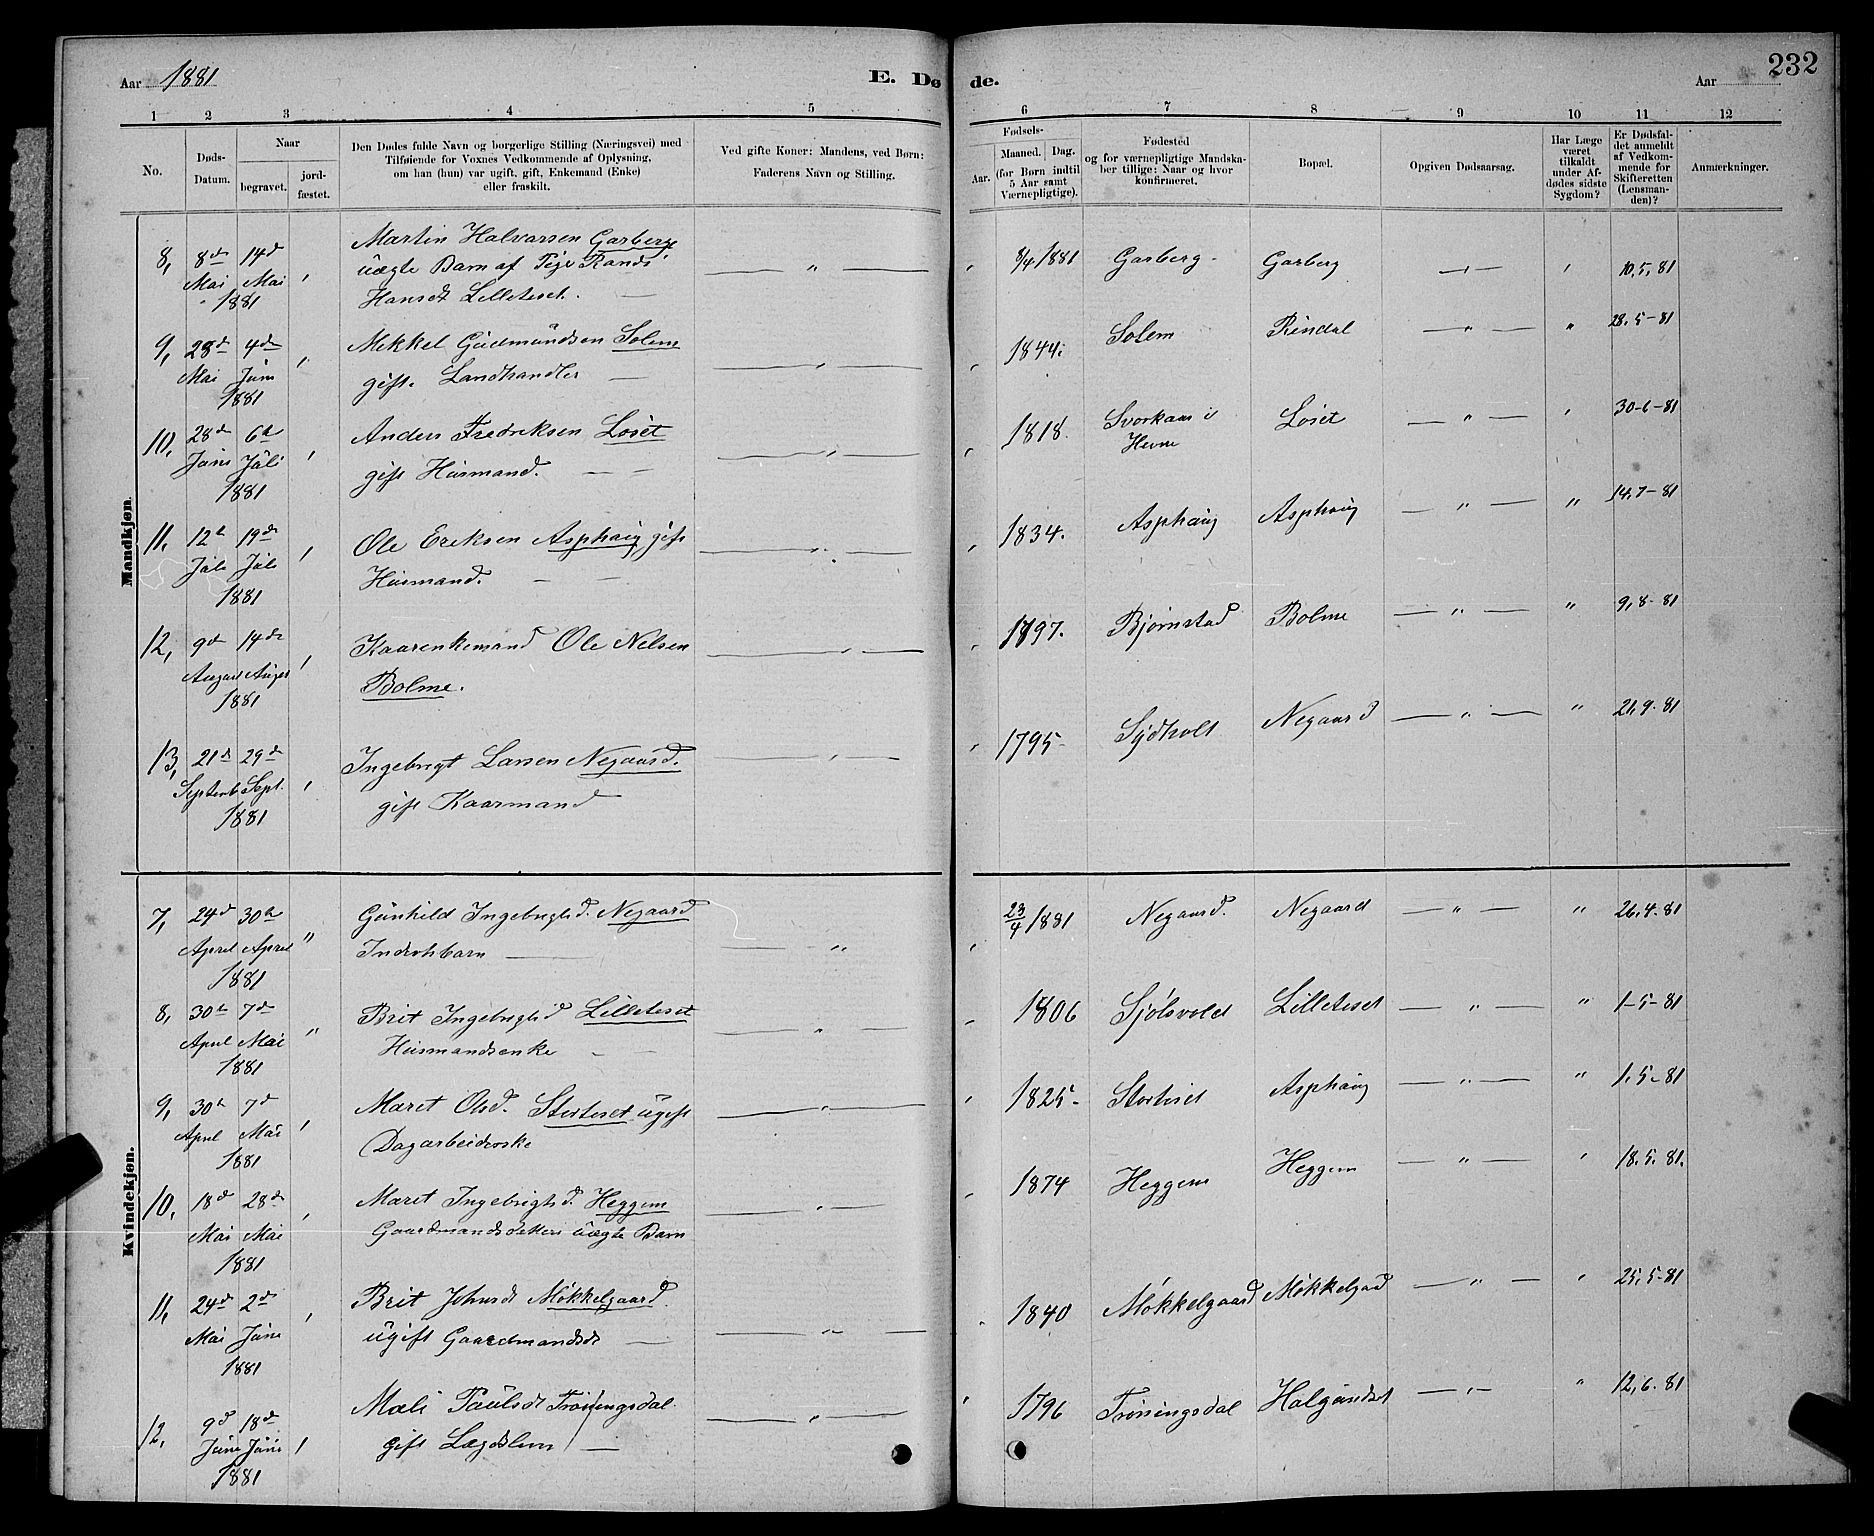 Aar 1881
E. Dø
de.
Aar
232
1 2 3 4 5 6 7 8 9 10 11 12
No.
Døds-
Datum.
Naar
begravet.
jord-
fæstet.
Den Dødes fulde Navn og borgerlige Stilling (Næringsvei) med
Tilføiende for Voxnes Vedkommende af Oplysning,
om han (hun) var ugift, gift, Enkemand (Enke)
eller fraskilt.
Ved gifte Koner: Mandens, ved Børn:
Faderens Navn og Stilling.
Fødsels-
Aar.
Maaned. Dag.
(for Børn indtil
5 Aar samt
Værnepligtige).
Fødested
og for værnepligtige Mandska-
ber tillige: Naar og hvor
konfirmeret.
Bopæl.
Opgiven Dødsaarsag.
Har Læge
været
tilkaldt
under Af-
dødes sidste
Sygdom?
Er Dødsfal-
det anmeldt
af Vedkom-
mende for
Skifteretten
(Lensman-
den)?
Anmærkninger.
Mandkjøn.
8, 8de 14d Martin Halvarsen Garberg — " — 8/4 1881 Garberg - Garberg — " — 10,5,81
Mai Mai uægte Barn af Pige Randi
1881 Hansdt Lilleteset. —
9, 28d 4de Mikkel Gudmundsen Solem — " — 1844. Solem Rindal — " — " 28.5-81
Mai Juni gift. Landhandler —
1881
10, 28d 6te Anders Fredriksen Løset — " — 1818. Svorkaas i Løset — " — 30-6-81
Juni Juli gift Husmand. — — Hevne
1881
11, 12te 19de Ole Eriksen Asphaug gift — " — 1834. Asphaug Asphaug — " — " 14.7-81
Juli Juli Husmand. — —
1881
12, 9de 14de Kaarenkemand Ole Nilsen — " — 1797. Bjørnstad Bolme — " — " 9,8-81
August August Bolme.
1881
13, 21d 29de Ingebrigt Larsen Negaard. — " — 1795- Sydholt Negaard — " — " 21,9.81
Septemb. Sept. gift Kaarmand
1881
Kvindekjøn.
7, 24d 30te Gunhild Ingebrigtsd. Negaard — " 23/4 1881 Negaard. Negaard — " — " 26.4.81
April April " Inderstbarn —
1881
8, 30te 7d Brit Ingebrigtsd Lilleteset — " — 1806 Sjølsvold Lilleteset — " — " 1-5-81
April Mai " Husmandsenke — —
1881
9, 30te 7d Maret Olsd. Storteset ugift — " — 1825- Storteset Asphaug — " — " 1.5-81
April Mai Dagarbeiderske
1881
10, 18d 28de Maret Ingebrigtsd. Heggem — " — 1874 Heggem Heggem — " — 18.5.81.
Mai Mai Gaardmandsdatters uægte Barn
1881
11, 24d 2d Brit Johnsdt Møkkelgaard. — " — 1840 Møkkelgaard Møkkelgaard — " — 25,5-81
Mai Juni ugift Gaardmandsdt —
1881
12, 9d 18d Mali Paulsdt Trønningsdal — " — 1796 Trønningsdal Halgundset — " — " 12,6.81
Juni Juni gift Lægdslem —
1881